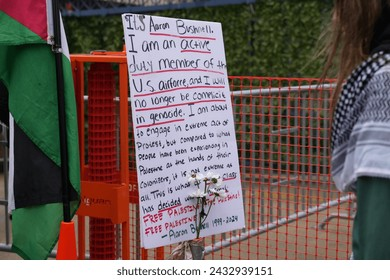 It's Aaron Bushnell.
I am an active
duty member of the
U.S airforce, and I will
no longer be complicit
in genocide. I am about
to engage in extreme act of
Protest, but compared to what
People have been experiencing in
Palestine at the hands of their
colonizers, it is not extreme at
all. This is what our ruling class
has decided
FREE PALESTINE
FREE PALESTINE
- Aaron Bushnell 1999-2024
shutterstock
IMAGE ID: 2432939151
www.shutterstock.com